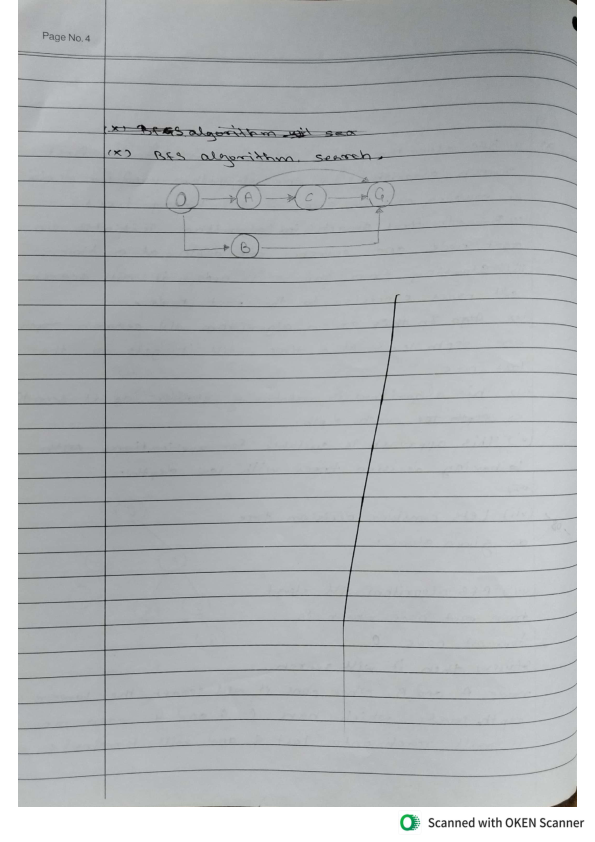 Page No. 4
(x) BFS algorithm sea
(x) BFS algorithm. search.
O A C G
B
Scanned with OKEN Scanner